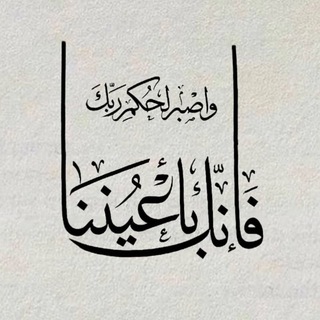 واصبر لحكم ربك
فإنك بأعيننا